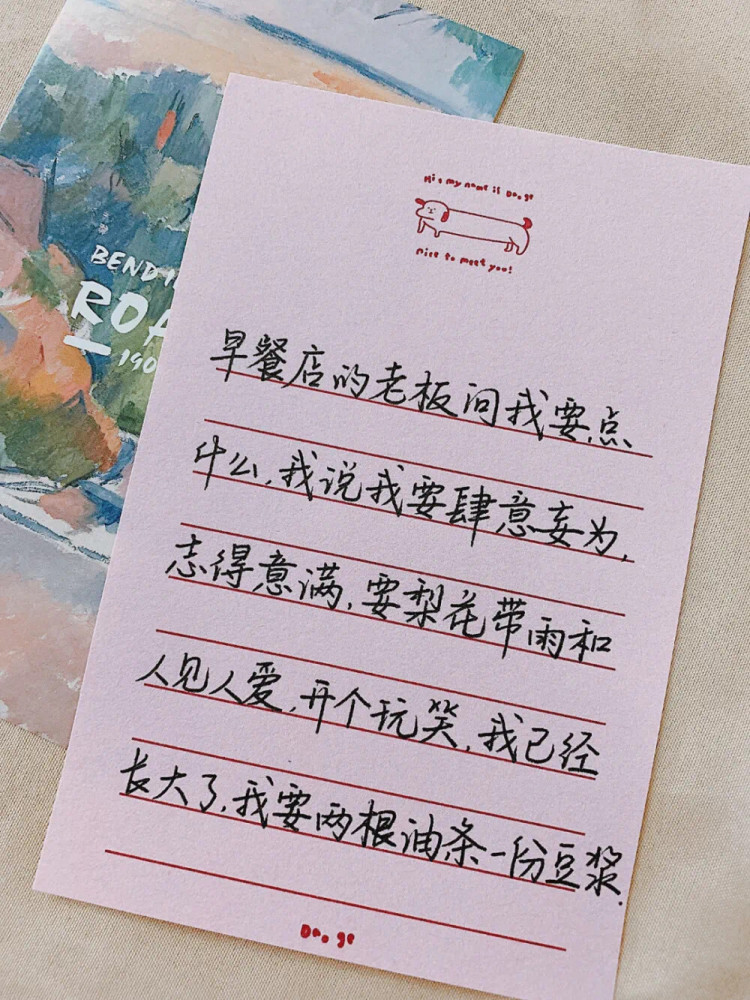 BENDI
ROA
190
Hi, my name is Dooge
nice to meet you!
早餐店的老板问我要点
什么,我说我要肆意妄为,
志得意满,要梨花带雨和
人见人爱,开个玩笑,我已经
长大了,我要两根油条一份豆浆.
Dooge